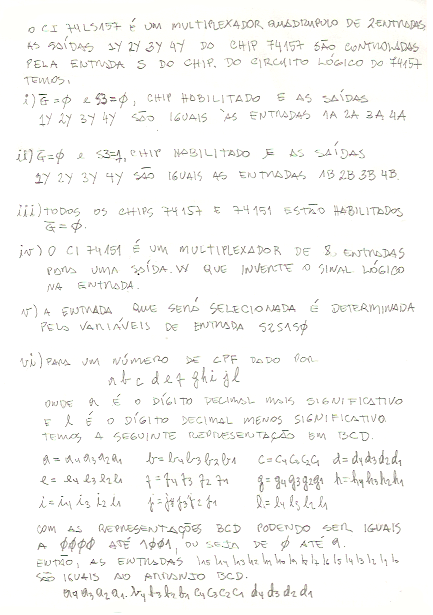 O CI 74LS157 É UM MULTIPLEXADOR QUADRUPULO DE 2 ENTRADAS
AS SAÍDAS 1Y 2Y 3Y 4Y DO CHIP 74157 SÃO CONTROLADAS
PELA ENTRADA S DO CHIP. DO CIRCUITO LÓGICO DO 74157
TEMOS:
i) G̅=φ e S3=φ, CHIP HABILITADO E AS SAÍDAS
1Y 2Y 3Y 4Y SÃO IGUAIS ÀS ENTRADAS 1A 2A 3A 4A
ii) G̅=φ e S3=1, CHIP HABILITADO E AS SAÍDAS
1Y 2Y 3Y 4Y SÃO IGUAIS AS ENTRADAS 1B 2B 3B 4B.
iii) TODOS OS CHIPS 74157 E 74151 ESTÃO HABILITADOS
G̅=φ.
iv) O CI 74151 É UM MULTIPLEXADOR DE 8 ENTRADAS
PARA UMA SAÍDA W QUE INVERTE O SINAL LÓGICO
NA ENTRADA.
v) A ENTRADA QUE SERÁ SELECIONADA É DETERMINADA
PELO VARIÁVEIS DE ENTRADA S2S1Sφ
vi) PARA UM NÚMERO DE CPF DADO POR
a b c d e f g h i j l
ONDE a É O DÍGITO DECIMAL MAIS SIGNIFICATIVO
E l É O DÍGITO DECIMAL MENOS SIGNIFICATIVO
TEMOS A SEGUINTE REPRESENTAÇÃO EM BCD.
a = a4a3a2a1 b = b4b3b2b1 c = c4c3c2c1 d = d4d3d2d1
e = e4e3e2e1 f = f4f3f2f1 g = g4g3g2g1 h = h4h3h2h1
i = i4i3i2i1 j = j4j3j2j1 l = l4l3l2l1
COM AS REPRESENTAÇÕES BCD PODENDO SER IGUAIS
A φφφφ ATÉ 1φφ1, OU SEJA DE φ ATÉ 9.
ENTÃO, AS ENTRADAS
SÃO IGUAIS AO ARRANJO BCD.
a4a3a2a1 b4b3b2b1 c4c3c2c1 d4d3d2d1